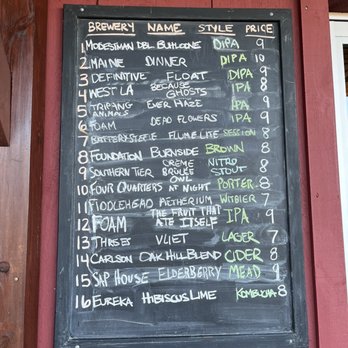 BREWERY NAME STYLE PRICE
1 MODESTMAN DBL BUHLOONE DIPA 9
2 MAINE DINNER DIPA 10
3 DEFINITIVE FLOAT DIPA 9
4 WEST LA BECAUSE GHOSTS IPA 8
5 TRIPPING ANIMALS EVER HAZE IPA 9
6 FOAM DEAD FLOWERS IPA 9
7 FLUME LITE SESSION 8
8 FOUNDATION BURNSIDE BROWN 8
9 SOUTHERN TIER CRÈME BRÛLÉE NITRO STOUT 8
10 FOUR QUARTERS OWL AT NIGHT PORTER 8
11 FIDDLEHEAD AETHERIUM WITBIER 7
12 FOAM THE FRUIT THAT ATE ITSELF IPA 9
13 THREES VLIET LAGER 7
14 CARLSON OAK HILL BLEND CIDER 8
15 SAP HOUSE ELDERBERRY MEAD 9
16 EUREKA HIBISCUS LIME KOMBUCHA 8